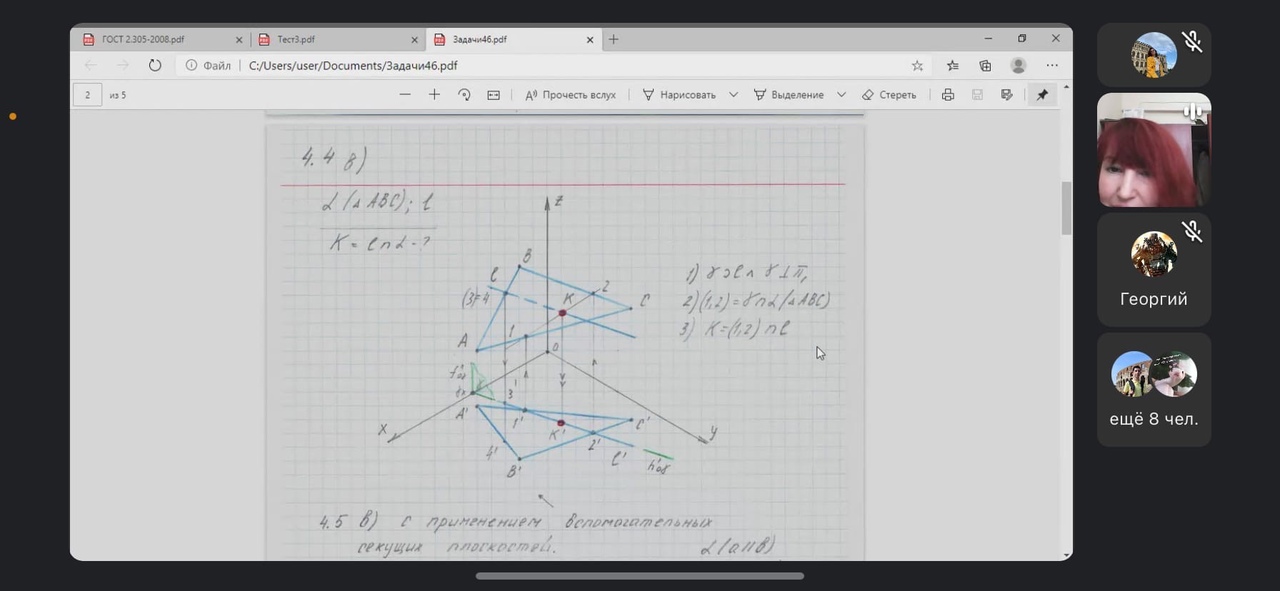 ГОСТ 2.305-2008.pdf
Тест3.pdf
Задачи4б.pdf
Файл
C:/Users/user/Documents/Задачи4б.pdf
2 из 5
Прочесть вслух
Нарисовать
Выделение
Стереть
4.4 в)
α (△ABC); ℓ
K = ℓ∩α - ?
z
B
ℓ
2
(3)≡4
K
C
1) γ⊃ℓ ∧ γ⊥π₁
2) (1,2) = γ∩α(△ABC)
3) K=(1,2)∩ℓ
1
A
O
3'
A'
1'
C'
x
K'
y
4'
2'
B'
ℓ'
4.5 в) с применением вспомогательных
секущих плоскостей.
α(a∥b)
Георгий
ещё 8 чел.